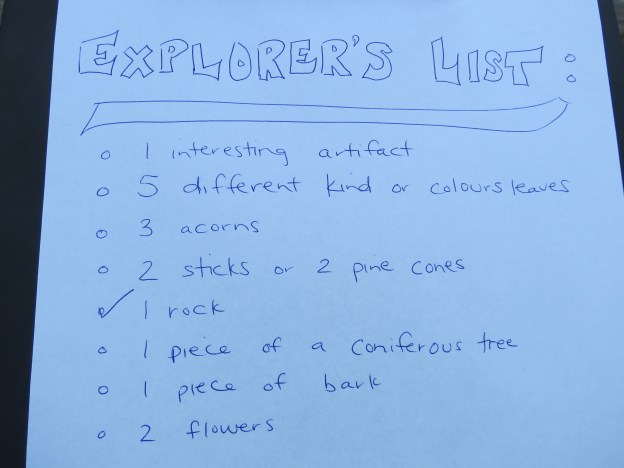 EXPLORER'S LIST:
1 interesting artifact
5 different kind or colours leaves
3 acorns
2 sticks or 2 pine cones
1 rock
1 piece of a coniferous tree
1 piece of bark
2 flowers